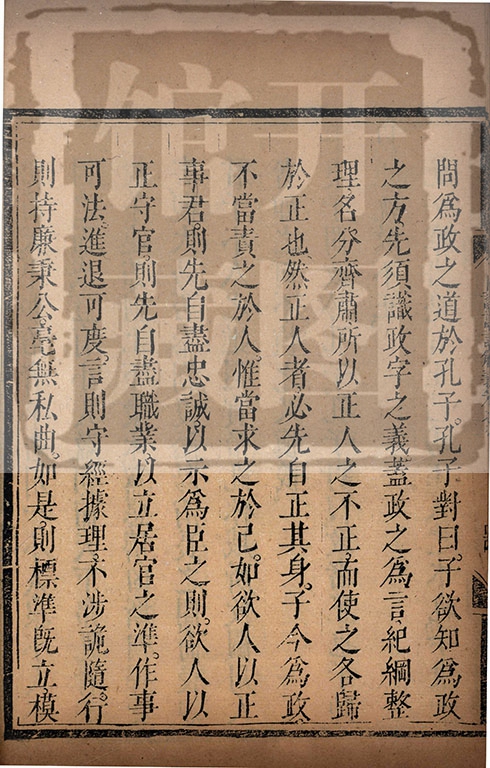 問爲政之道於孔子。孔子對曰。子欲知爲政
之方。先須識政字之義。蓋政之爲言。紀綱整
理。名分齊肅。所以正人之不正。而使之各歸
於正也。然正人者。必先自正其身。子今爲政
不當責之於人。惟當求之於己。如欲人以正
事君。則先自盡忠誠。以示爲臣之則。欲人以
正守官。則先自盡職業。以立居官之準。作事
可法。進退可度。言則守經據理。不涉詭隨。行
則持廉秉公。毫無私曲。如是。則標準既立。模